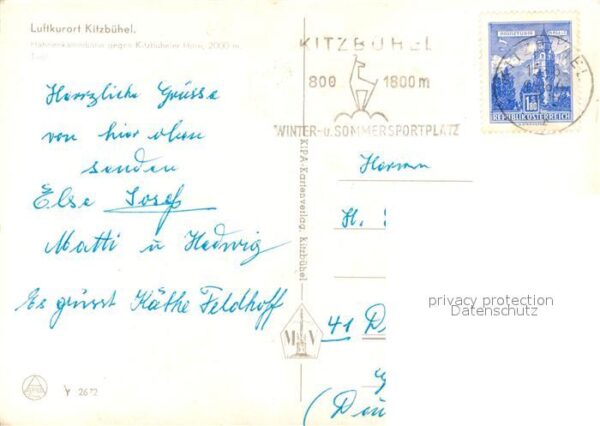 Luftkurort Kitzbühel.
Hahnenkammbahn gegen Kitzbüheler Horn, 2000 m
Tirol
Herrzliche Grüsse
von hier oben
senden
Else Josef
Matti u Hedwig
Es grüsst Käthe Feldhoff
2672
KiPA-Kartenverlag, Kitzbühel
M V
KITZBÜHEL
800 1800 m
WINTER- u. SOMMERSPORTPLATZ
KITZBÜHEL
1.80
REPUBLIK ÖSTERREICH
Herrn
H.
41 D
(Dui
privacy protection
Datenschutz